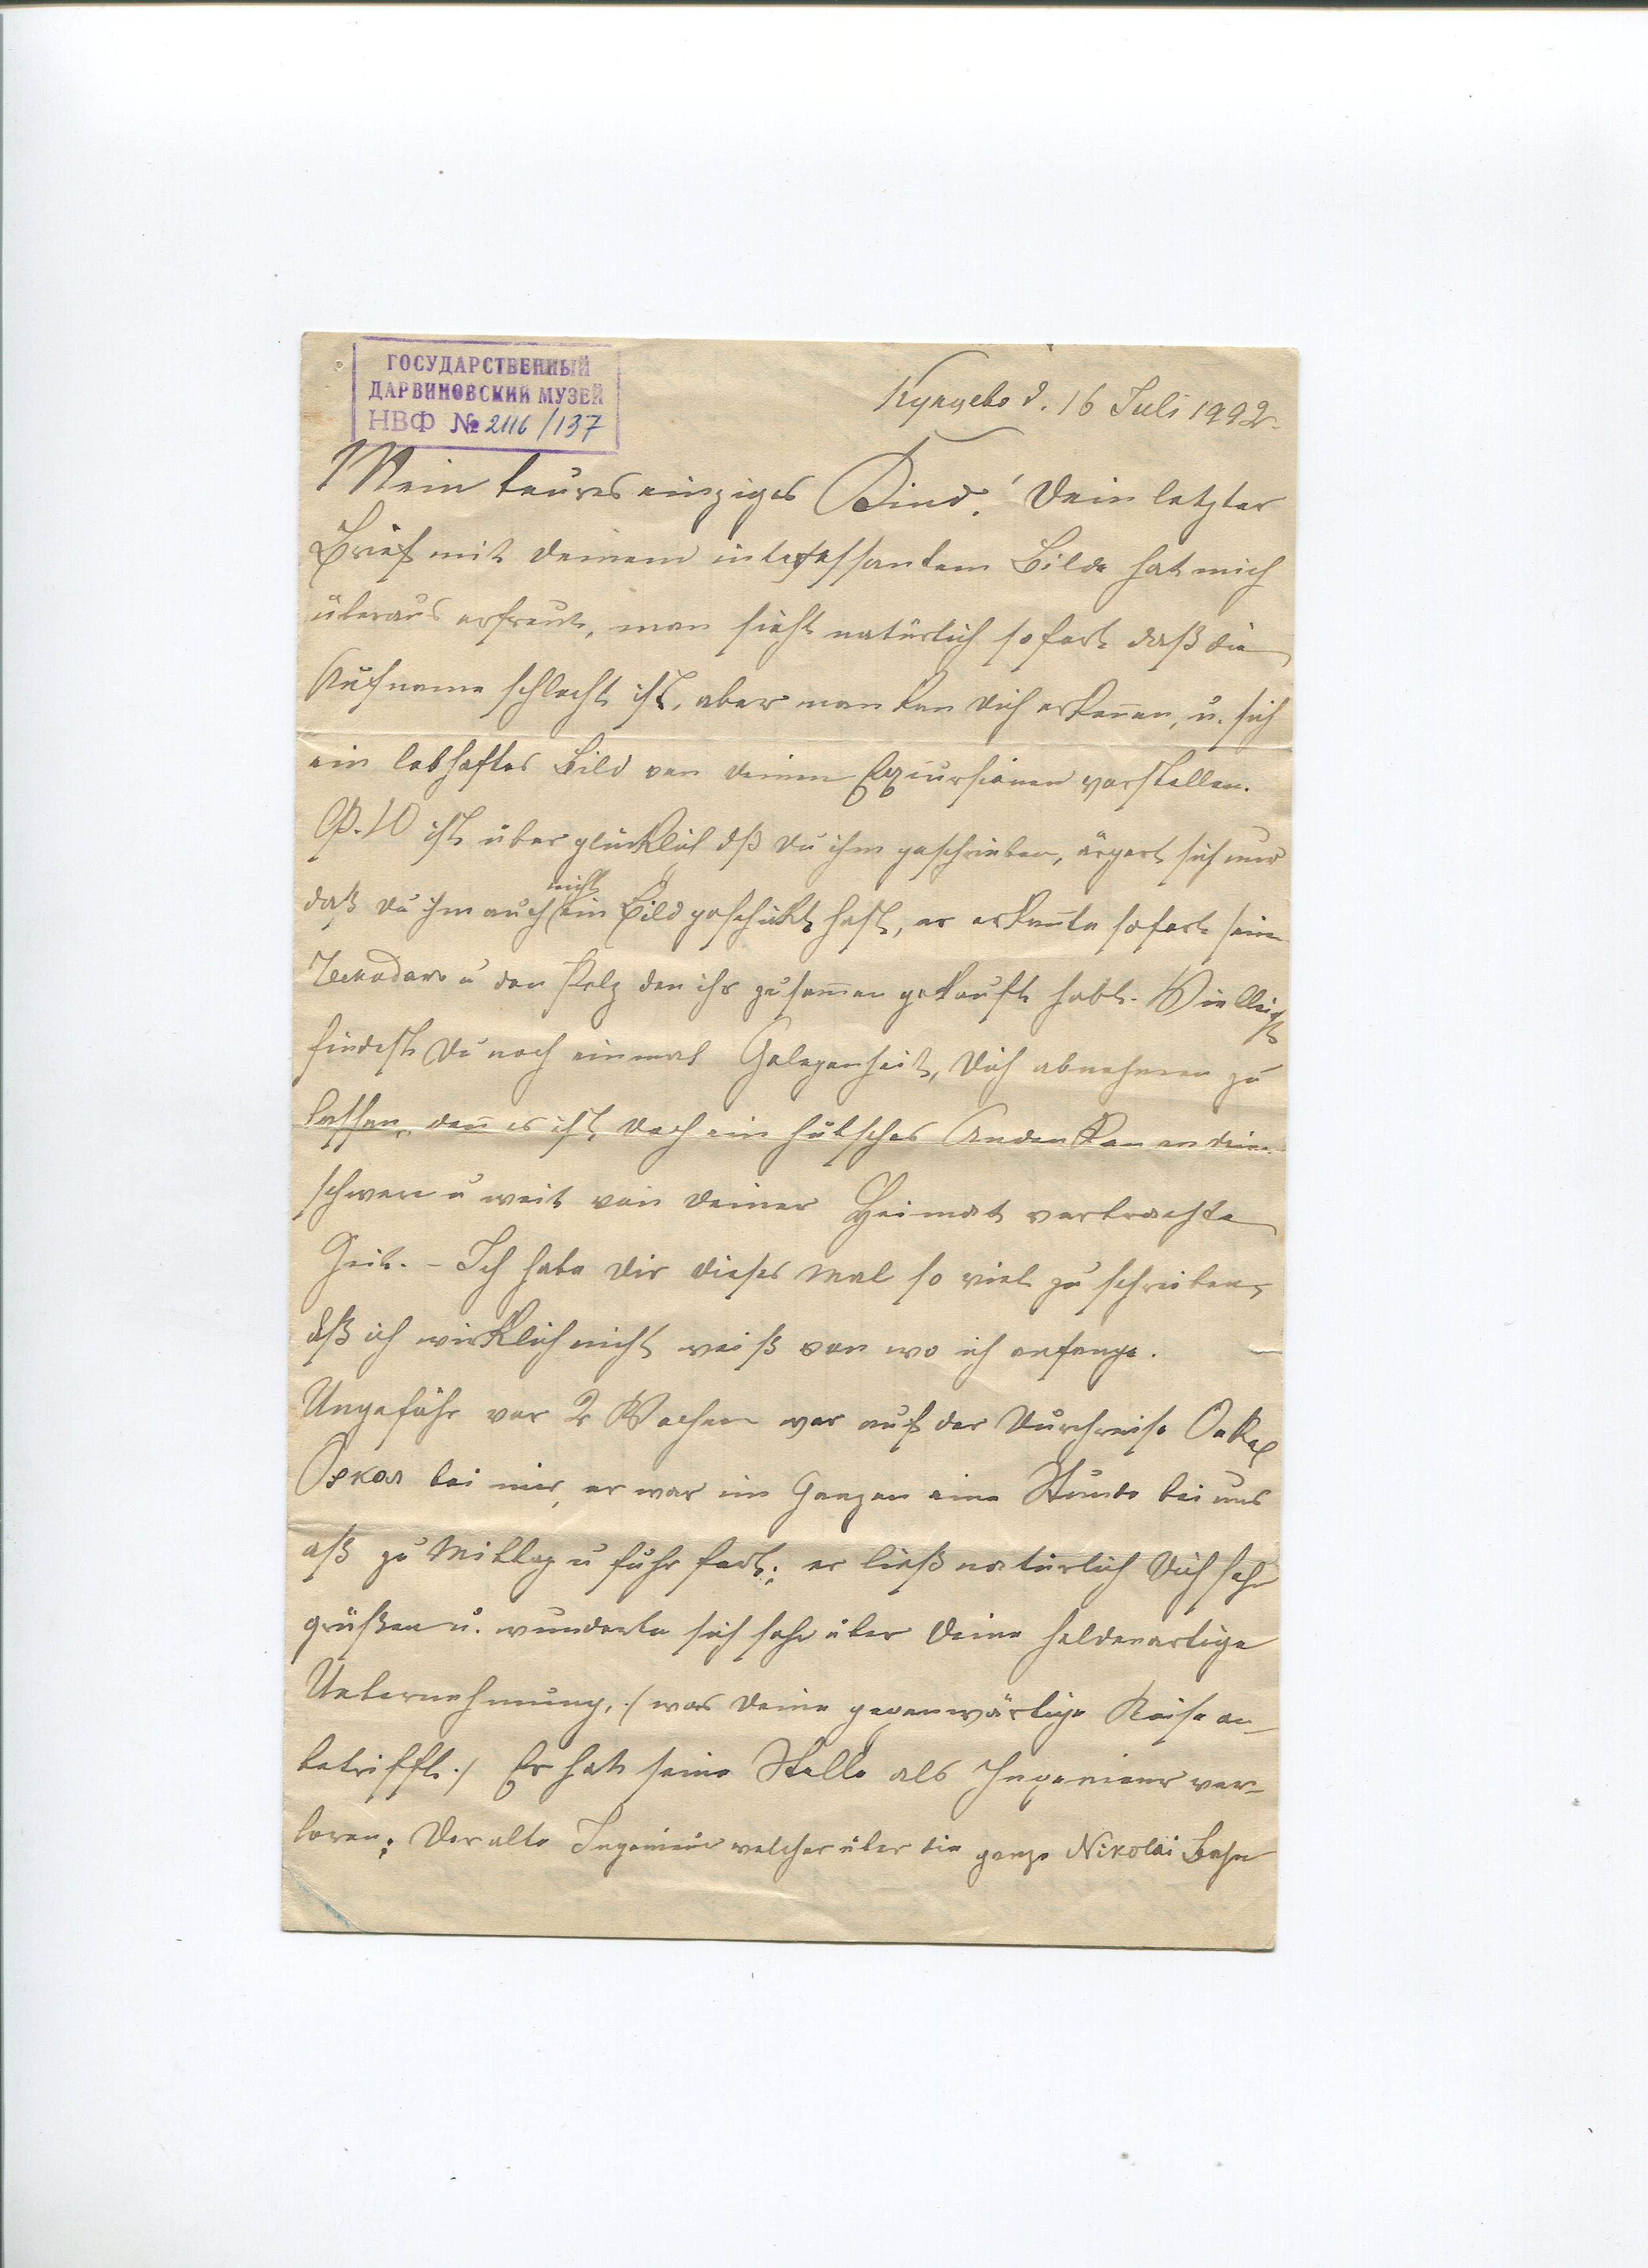 ГОСУДАРСТВЕННЫЙ
ДАРВИНОВСКИЙ МУЗЕЙ
НВФ № 2116/137
Кунцево d. 16 Juli 1992
Mein teures einziges Kind! Dein letzter
Brief mit deinem interessanten Bilde hat mich
überaus erfreut, man sieht natürlich sofort daß die
Aufname schlecht ist, aber man kan dich erkennen, u. sich
ein lebhaftes Bild von deinen Excursionen vorstellen.
ist über glücklich dß du ihm geschrieben, ärgert sich nur
daß du ihm auch nicht ein Bild geschickt hast, er erkannte sofort sein
u den Pelz den ihr zusammen gekauft habt. Vielleicht
findest Du noch einmal Gelegenheit, Dich abnehmen zu
lassen, denn es ist doch ein hübsches Andenken an deine
schwere u weit von deiner Heimat verbrachte
Zeit. - Ich habe dir dieses Mal so viel zu schreiben,
dß ich wirklich nicht weiß von wo ich anfange.
Ungefähr vor 2 Wochen war auf der Durchreise Onkel
Оskar bei mir, er war im Ganzen eine Stunde bei uns
aß zu Mittag u fuhr fort; er ließ natürlich Dich sehr
grüßen u. wunderte sich sehr über Deine heldenartige
Unternehmung, (was deine gegenwärtige Reise an-
betrifft.) Er hat seine Stelle als Ingenieur ver-
loren; Der alte Ingenieur welcher über die ganze Nikolai Bahn